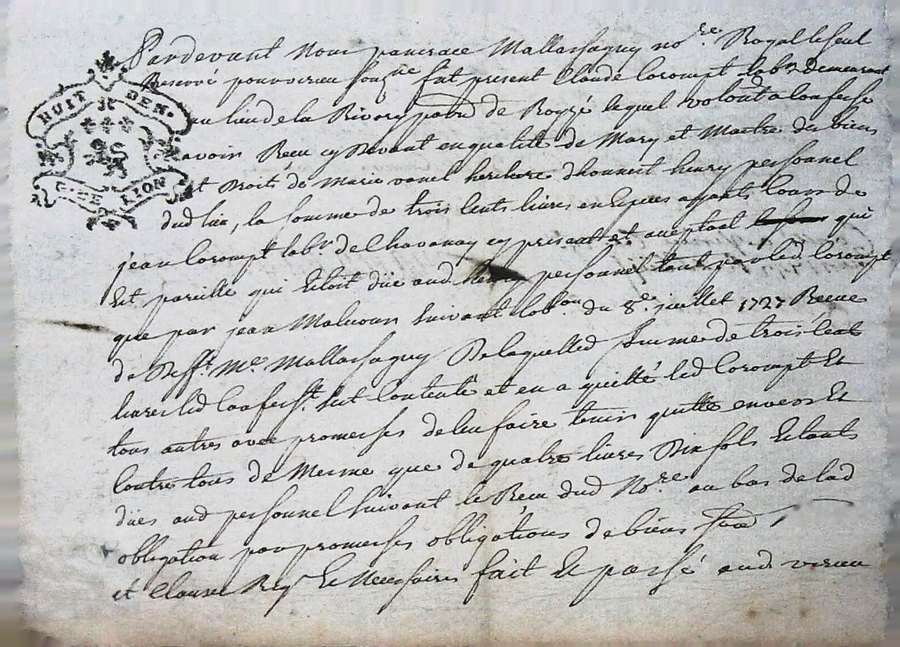 HUIT DEN.
G. DE LION
Pardevant Nous pancrace Mallassagny no.re Royal le seul
Reservé pour virieu soug.ne fut present Claude Corompt lab.r Demeurant
au lieu de la Rivory de Roysé lequel volont.t a Confessé
avoir Receu cy devant en qualitté de Mary et Maitre des biens
et Droits de Marie vanel heritiere d'honneste henry personnel
dud lieu, la somme de trois Cents livres en Especes ayants Cours de
jean Corompt lab.r de Chavanay cy present et aceptant qui
Est pareille qui Estoit düe aud henry personnel tant par led Corompt
que par jean Malcour suivant lob.on du 8.e juillet 1727 Receue
de Deff.t M.e Mallassagny De laquelle d somme de trois Cent
livres led Confess.t s'est Contenté et en a quitté led Corompt Et
tous autres avec promesses de l'en faire tenir quitte envers Et
Contre tous de Mesme que de quatre livres Dix sols Estants
dües aud personnel suivant le Receu dud No.re au bas de lad
obligation par promesses obligations de biens
et Clauses Req. Et Necessaires fait Et passé aud virieu